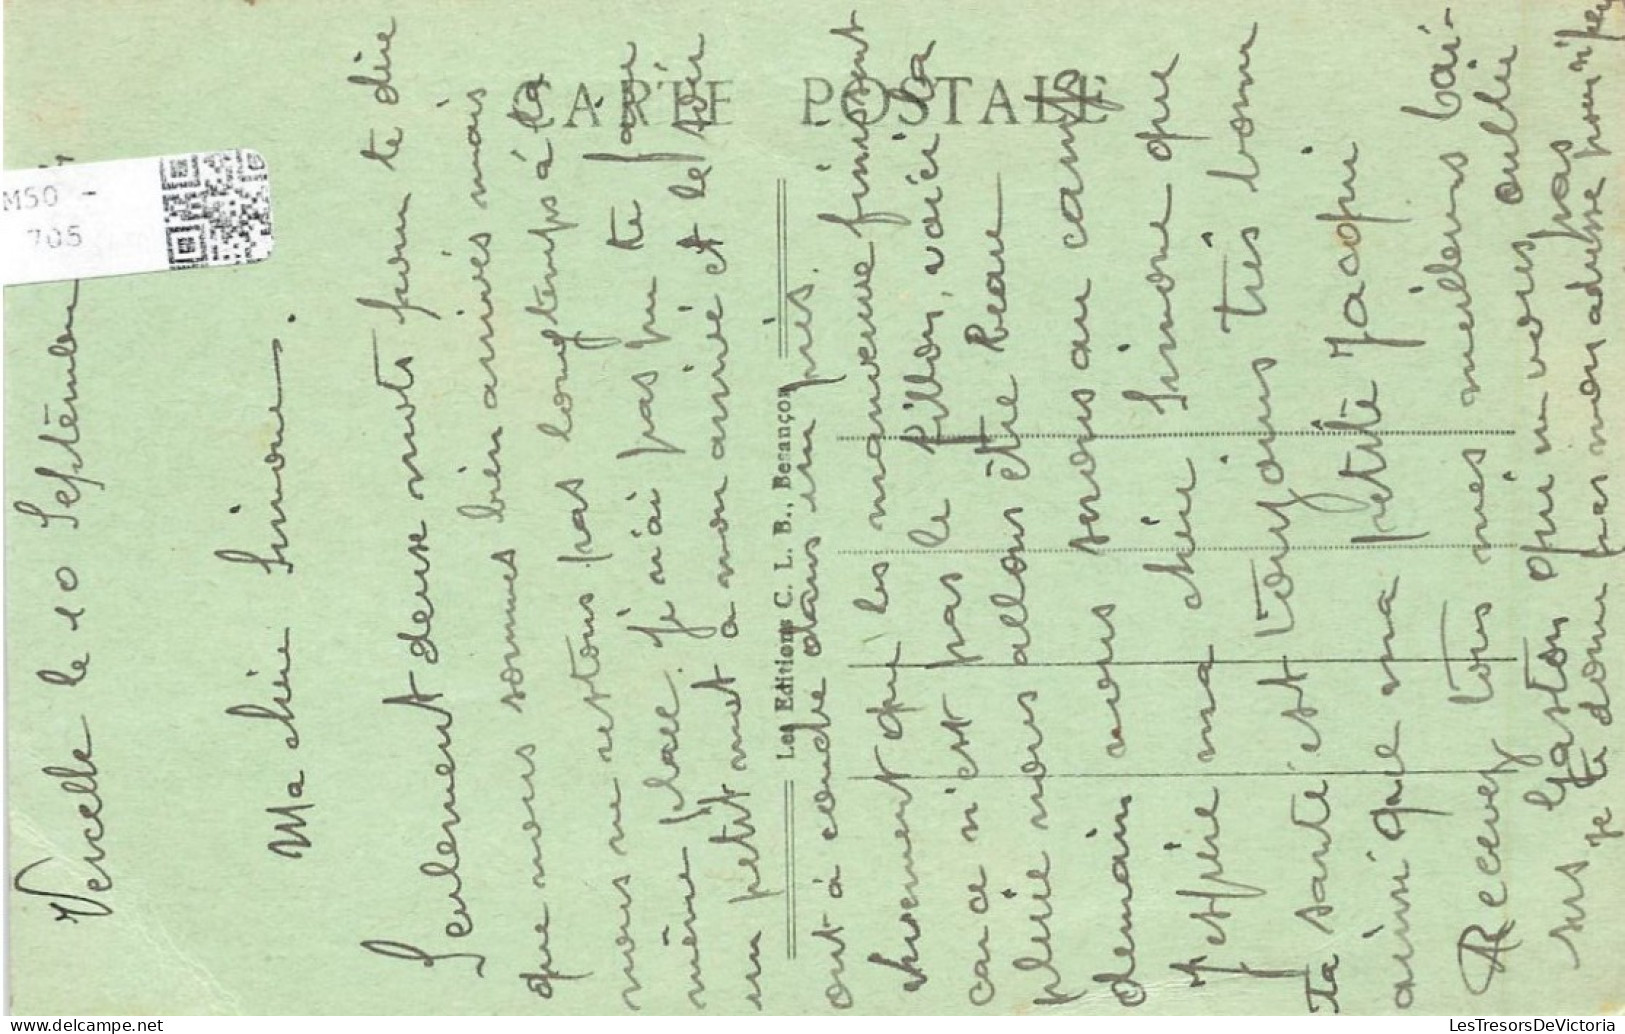 CARTE POSTALE
Les Editions C. L. B., Besançon
M50 -
705
Vercelle le 10 Septembre
Ma chère Simone.
Seulement deux mots pour te dire
que nous sommes bien arrivés mais
nous ne restons pas longtemps à la
même place. Je n'ai pas pu te faire
un petit mot a mon arrivé et le soir
ont à couche dans un près.
vivement que les manœuvre finissent
car ce n'est pas le fillon, voici la
pluie nous allons être beau
demain nous serons au camps
J'espère ma chère Simone que
ta santé est toujours très bonne
ainsi que ma petite Jacqui
Recevez tous mes meilleurs bai-
sers Gaston qui ne vous oublie pas
je te donne pas mon adresse pour
LesTresorsDeVictoria